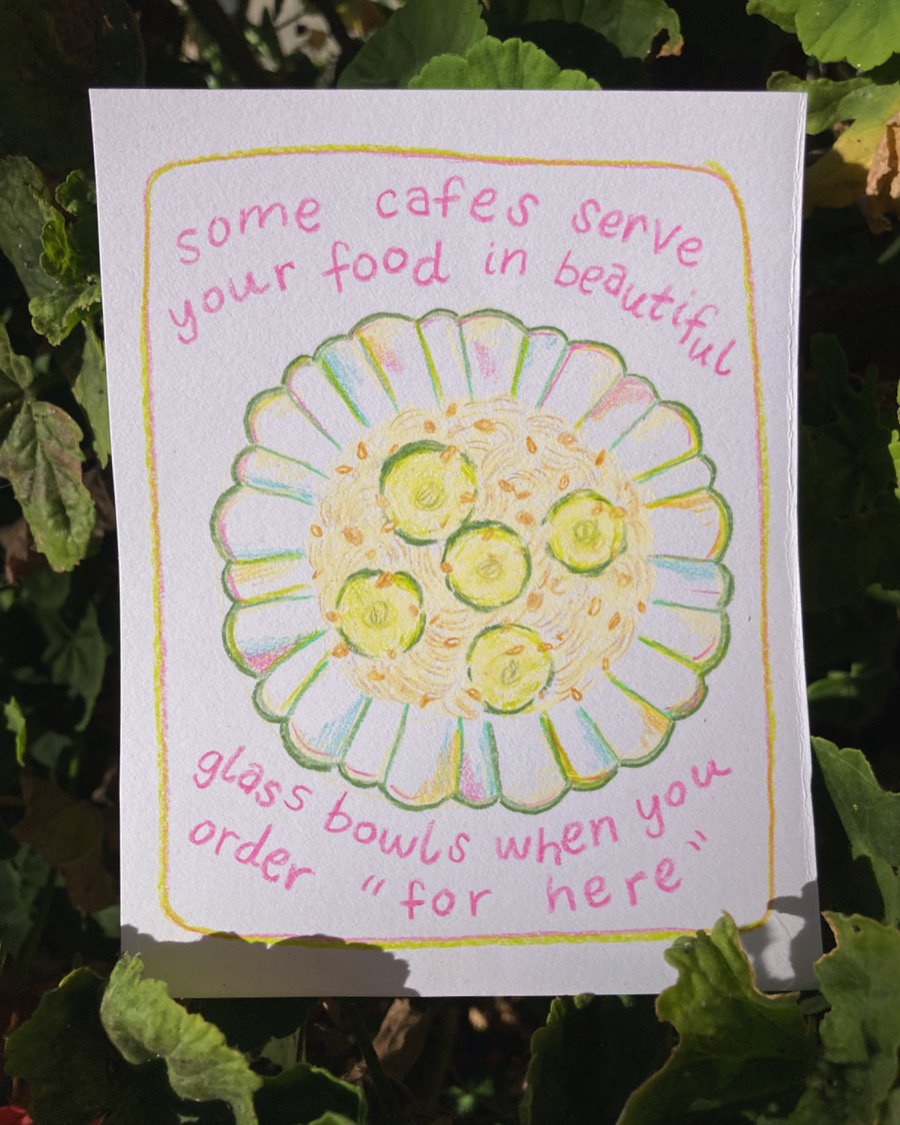 some cafes serve
your food in beautiful
glass bowls when you
order "for here"